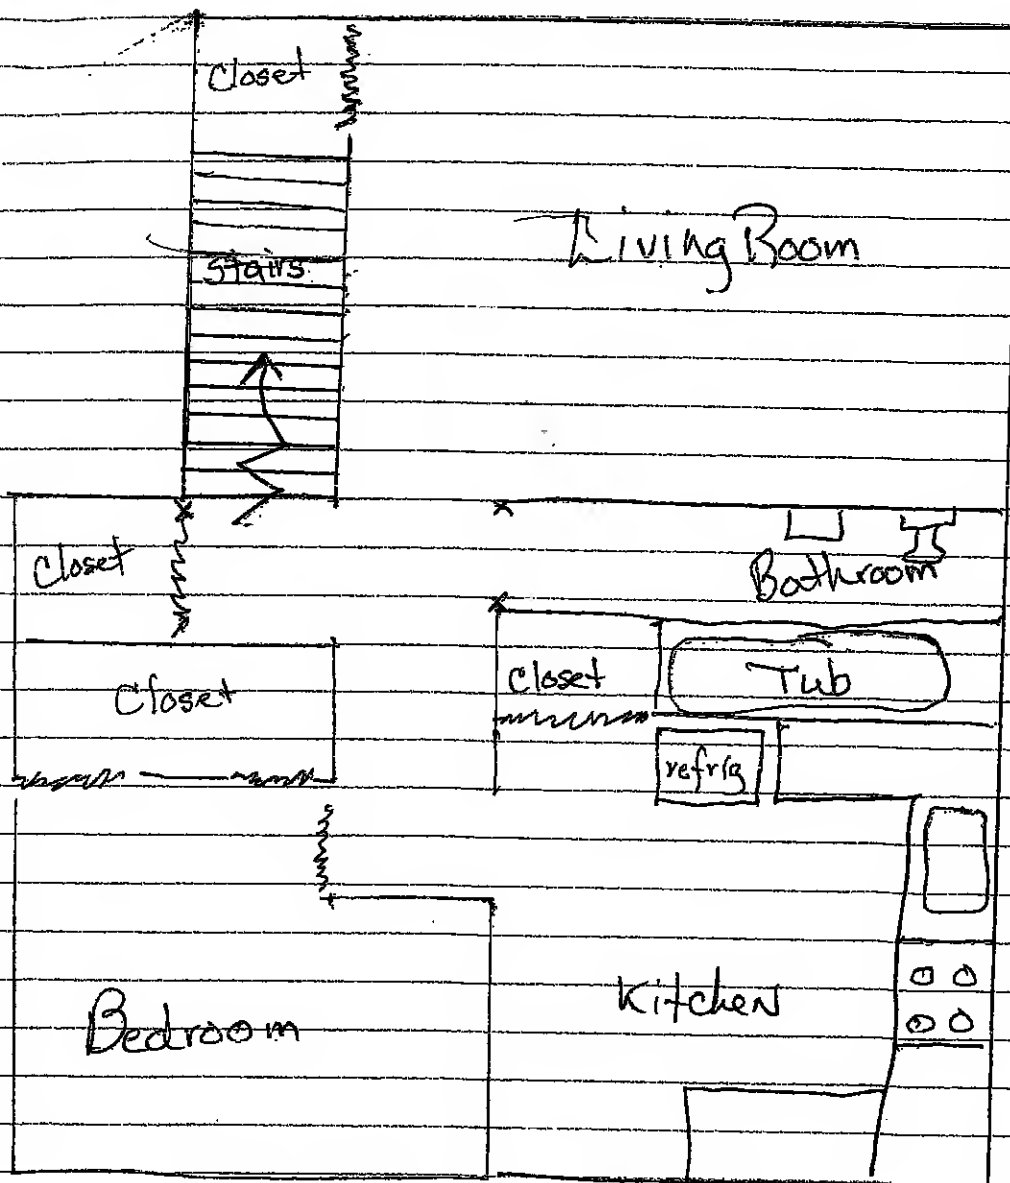 Closet
Living Room
Stairs
Closet
Bathroom
Closet
Closet
Tub
refrig
Kitchen
Bedroom